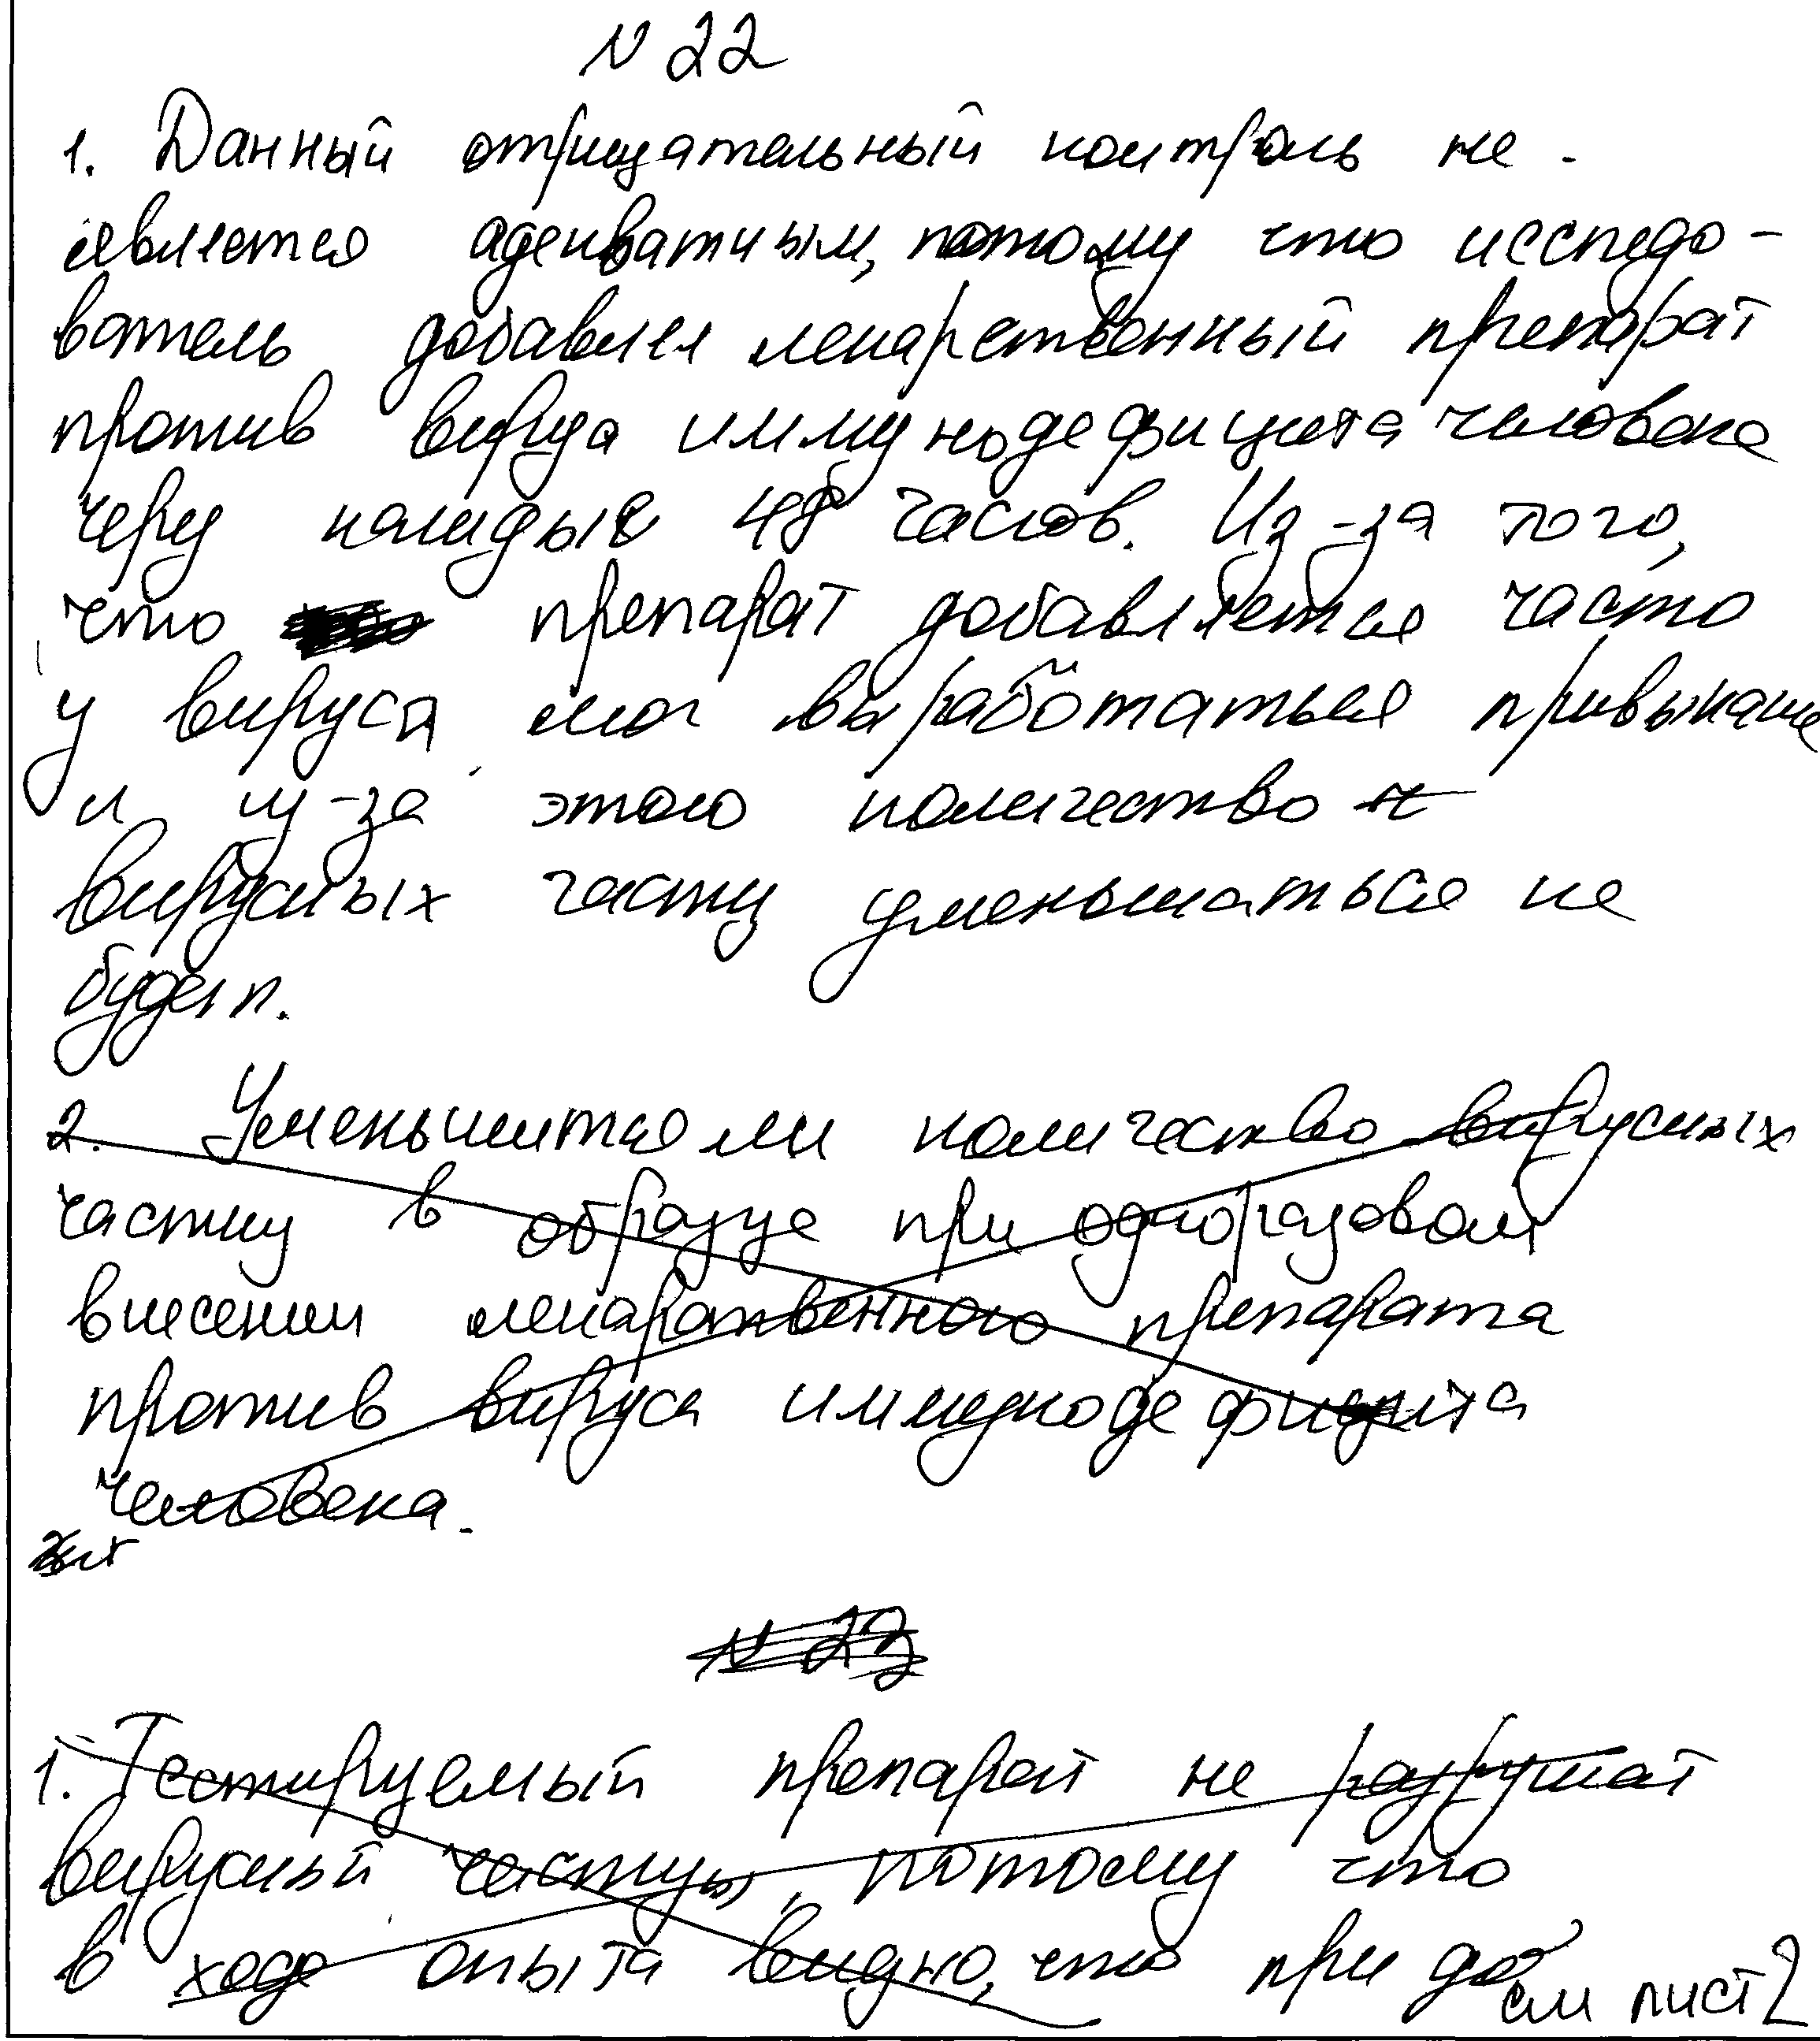 N 22
1. Данный отрицательный контроль не -
является адекватным, потому что исследо-
ватель добавлял лекарственный препарат
против вируса иммунодефицита человека
через каждые 48 часов. Из-за того,
что препарат добавляется часто
у вируса мог выработаться привыкание
и из-за этого количество
вирусных частиц уменьшаться не
будет.
2. Уменьшится ли количество вирусных
частиц в образце при одноразовом
внесении лекарственного препарата
против вируса иммунодефицита
человека.
N 23
1. Тестируемый препарат не разрушат
вирусный частицы, потому что
в ходе опыта видно, что при до
см лист 2